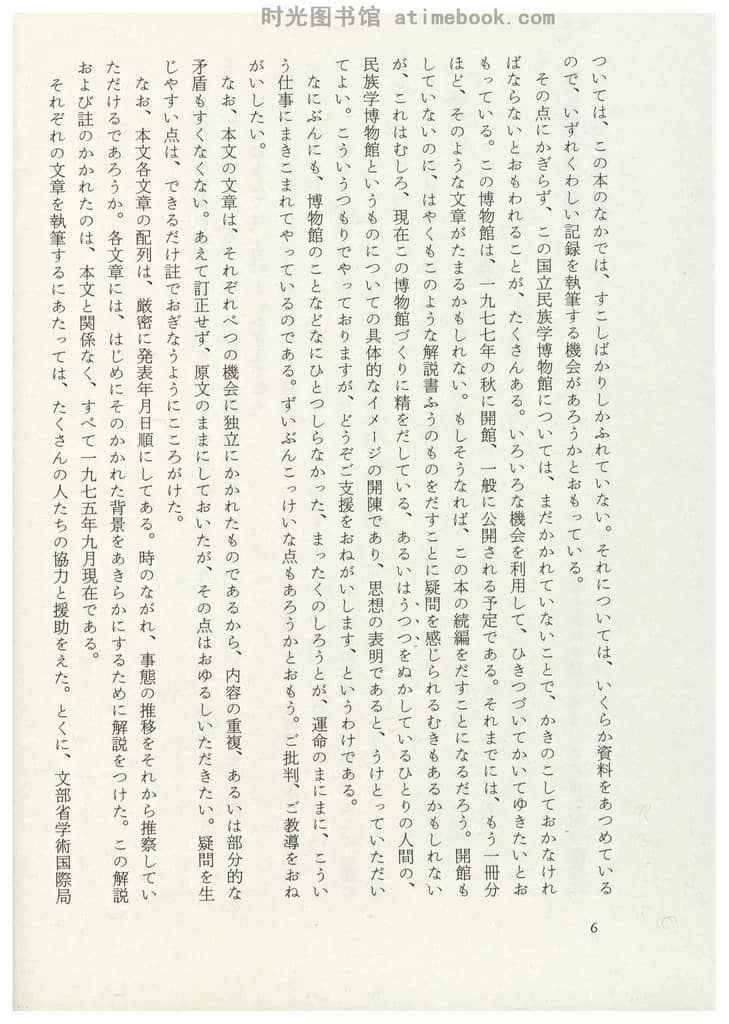 时光图书馆 atimebook.com
ついては、この本のなかでは、すこしばかりしかふれていない。それについては、いくらか資料をあつめている
ので、いずれくわしい記録を執筆する機会があろうかとおもっている。
その点にかぎらず、この国立民族学博物館については、まだかかれていないことで、かきのこしておかなけれ
ばならないとおもわれることが、たくさんある。いろいろな機会を利用して、ひきつづいてかいてゆきたいとお
もっている。この博物館は、一九七七年の秋に開館、一般に公開される予定である。それまでには、もう一冊分
ほど、そのような文章がたまるかもしれない。もしそうなれば、この本の続編をだすことになるだろう。開館も
していないのに、はやくもこのような解説書ふうのものをだすことに疑問を感じられるむきもあるかもしれない
が、これはむしろ、現在この博物館づくりに精をだしている、あるいはうつつをぬかしているひとりの人間の、
民族学博物館というものについての具体的なイメージの開陳であり、思想の表明であると、うけとっていただい
てよい。こういうつもりでやっておりますが、どうぞご支援をおねがいします、というわけである。
なにぶんにも、博物館のことなどなにひとつしらなかった、まったくのしろうとが、運命のまにまに、こうい
う仕事にまきこまれてやっているのである。ずいぶんこっけいな点もあろうかとおもう。ご批判、ご教導をおね
がいしたい。
なお、本文の文章は、それぞれべつの機会に独立にかかれたものであるから、内容の重複、あるいは部分的な
矛盾もすくなくない。あえて訂正せず、原文のままにしておいたが、その点はおゆるしいただきたい。疑問を生
じやすい点は、できるだけ註でおぎなうようにこころがけた。
なお、本文各文章の配列は、厳密に発表年月日順にしてある。時のながれ、事態の推移をそれから推察してい
ただけるであろうか。各文章には、はじめにそのかかれた背景をあきらかにするために解説をつけた。この解説
および註のかかれたのは、本文と関係なく、すべて一九七五年九月現在である。
それぞれの文章を執筆するにあたっては、たくさんの人たちの協力と援助をえた。とくに、文部省学術国際局
6